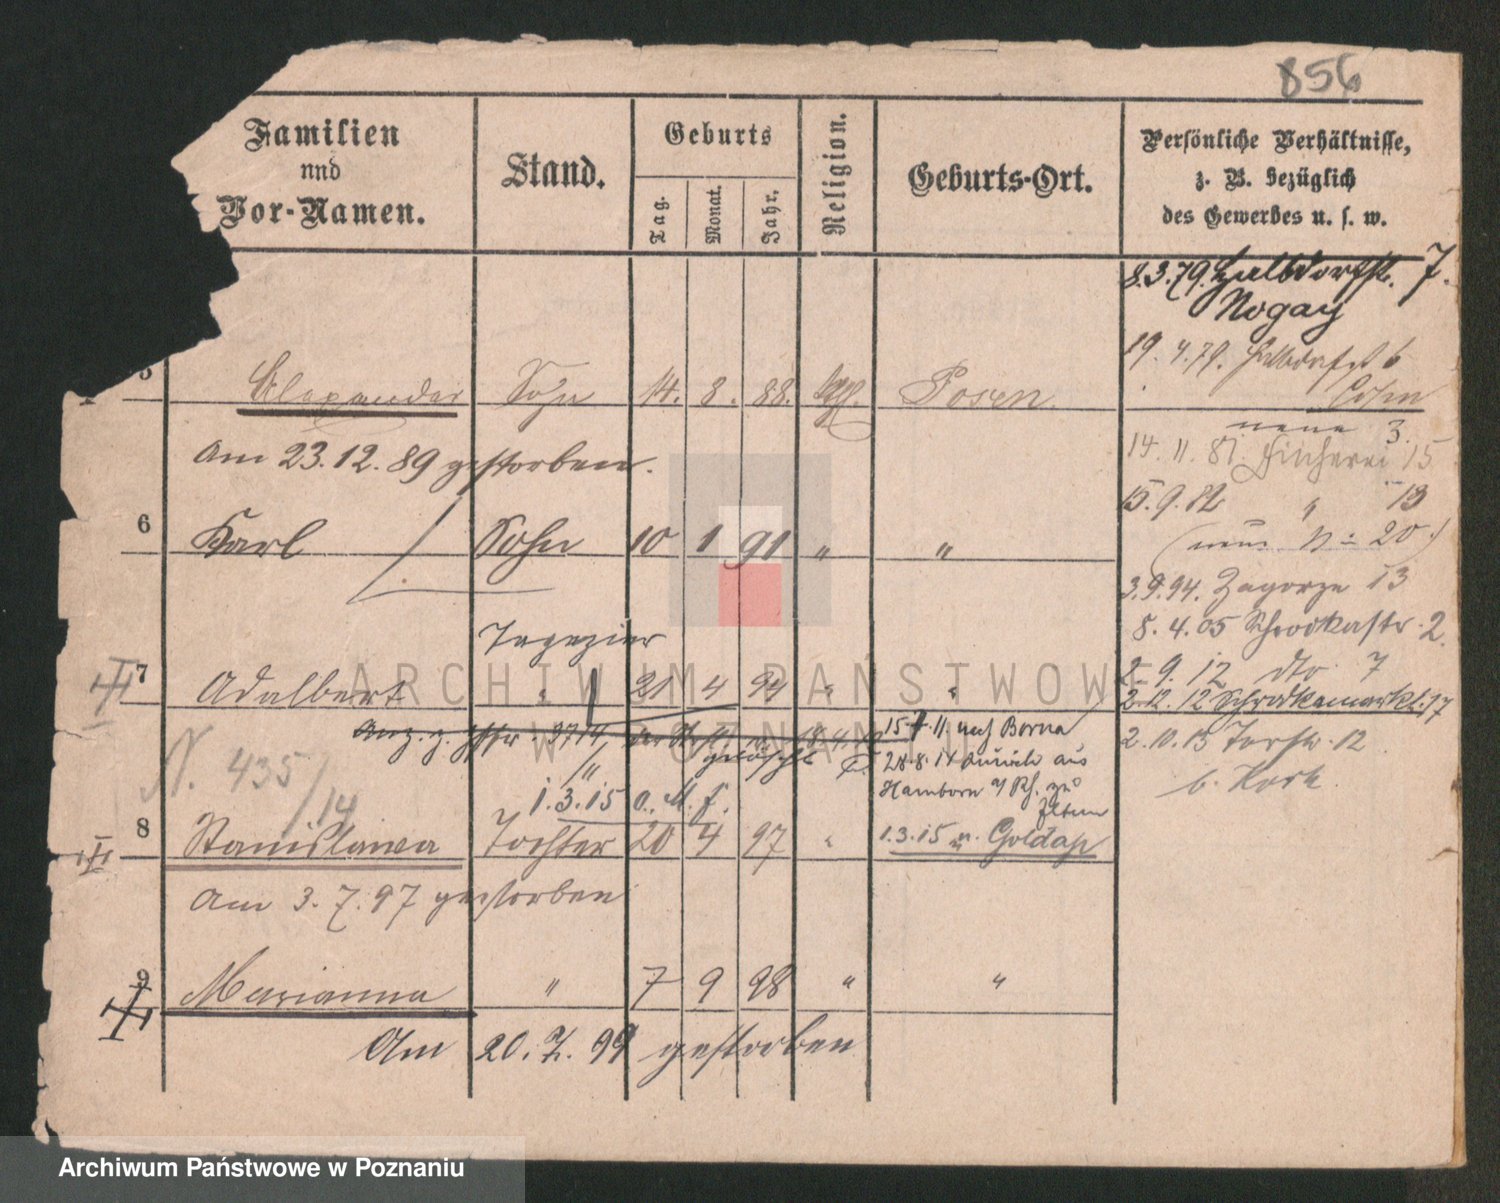 856
Familien
und
Vor-Namen.
Stand.
Geburts
Tag.
Monat.
Jahr.
Religion.
Geburts-Ort.
Persönliche Verhältnisse,
z. B. bezüglich
des Gewerbes u. s. w.
8.3.79. Halbdorfstr. 7.
Nogay
19.4.79. Halbdorfst 6
Cohn
neue 3.
14.11.81. Fischerei 15
15.9.82 " 13
(neue N: 20)
3.9.94. Zagorze 13
8.4.05 Schrodkastr. 2.
2.9.12 dto 7
2.12.12 Schrodkamarkt 17
2.10.13 Torstr. 12
b. Kork
5 Alexander Sohn 14. 8. 88. kath. Posen.
Am 23.12.89 gestorben.
6 Karl Sohn 10 1 91 " "
Tapezier
7 Adalbert " 21 4 94 " "
15.7.11. nach Borna
28.8.1 zurück aus
Hamborn a/Rh. zu
Eltern
N. 435/14
1.3.15 o. M. f.
1.3.15 n. Goldap
8 Stanislawa Tochter 20 4 97 "
Am 3.7.97 gestorben
9 Marianna " 7 9 98 " "
Am 20.7.99 gestorben
ARCHIWUM PAŃSTWOWE
W POZNANIU
Archiwum Państwowe w Poznaniu